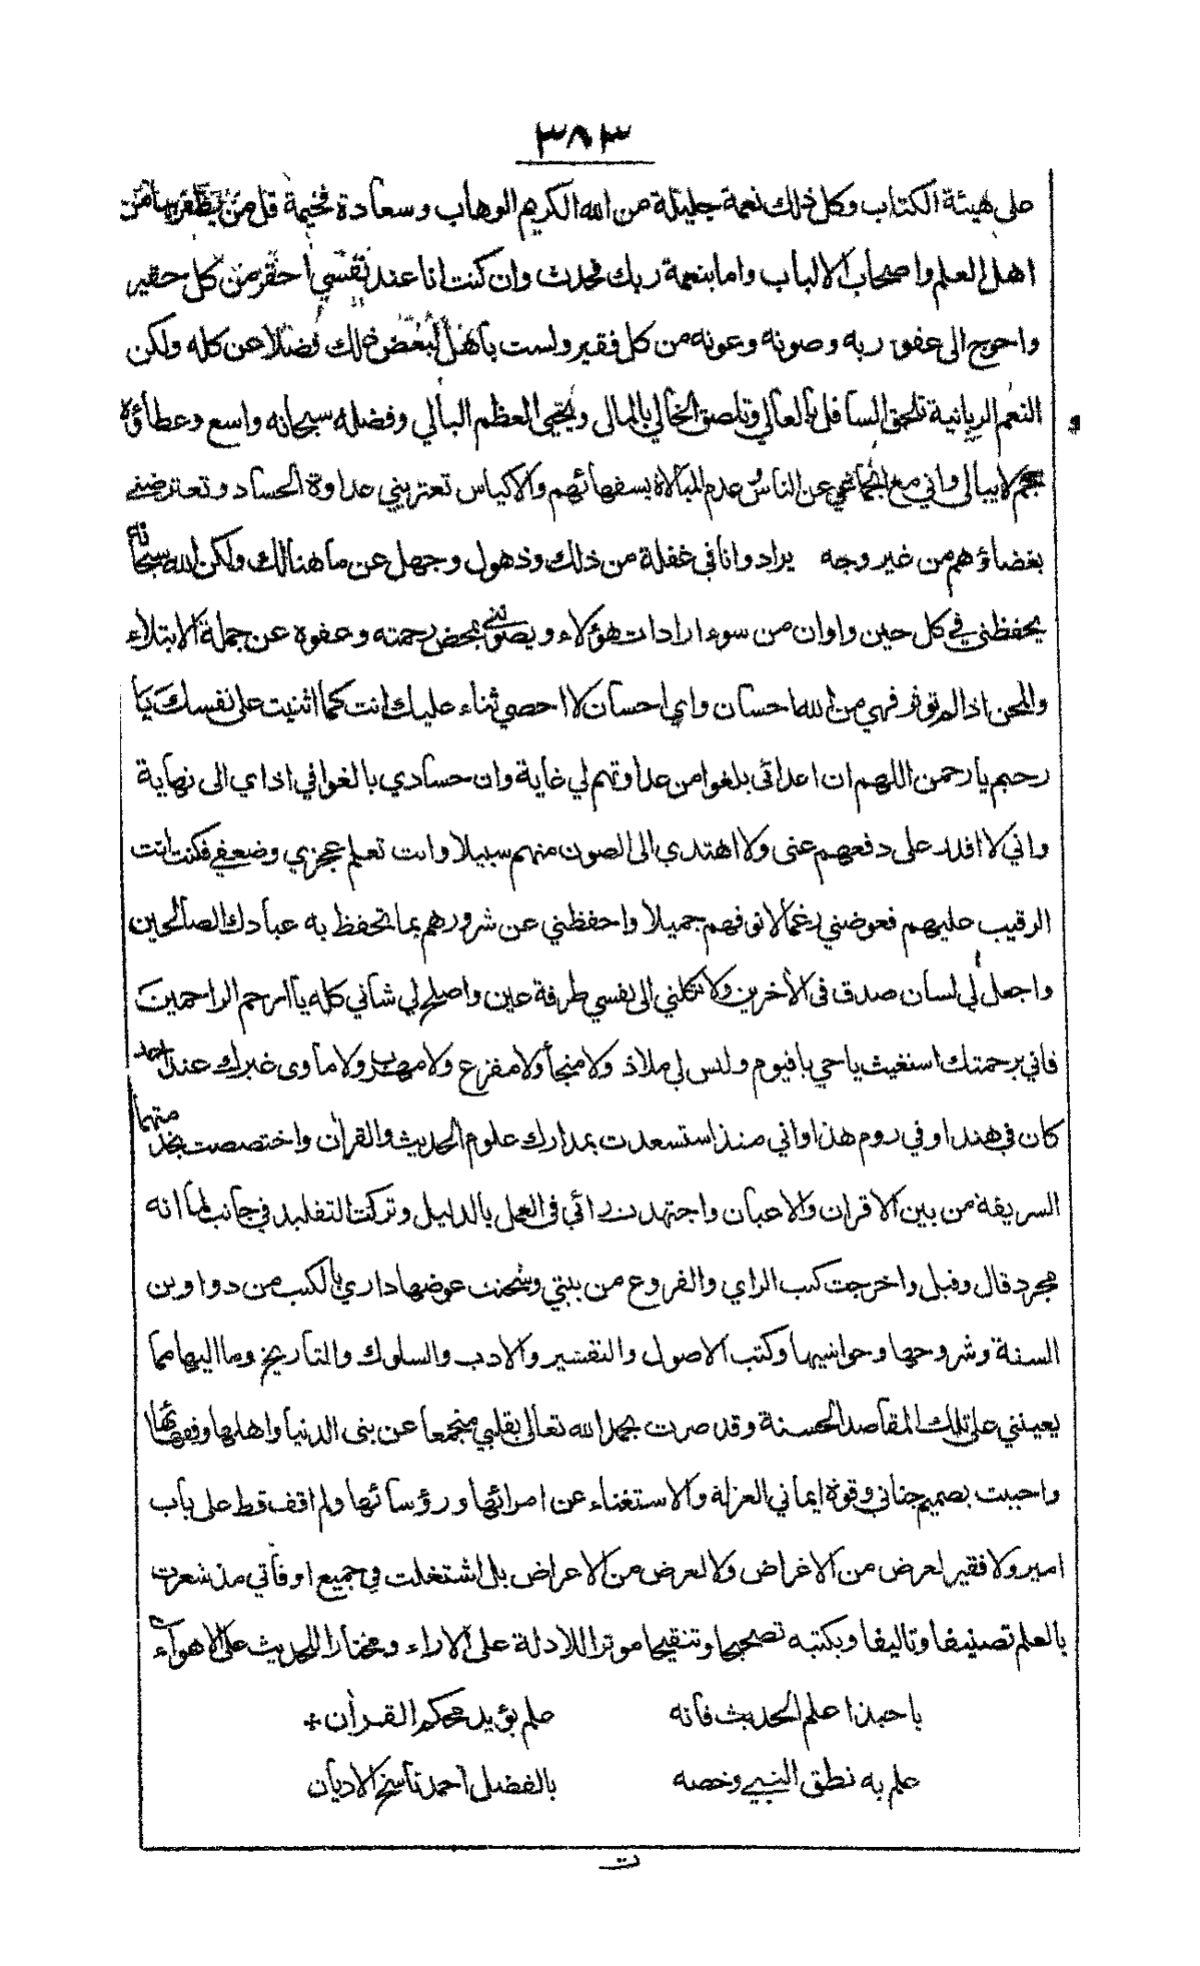 ٣٨٣
على هيئة الكتاب وكل ذلك نعمة جليلة من الله الكريم الوهاب وسعادة فخيمة قل من يظفر بها من
اهل العلم واصحاب الالباب واما بنعمة ربك فحدث وان كنت انا عند نفسي احقر من كل حقير
واحوج الى عفو ربه وصونه وعونه من كل فقير ولست باهل لبعض ذلك فضلا عن كله ولكن
النعم الربانية تلحق السافل بالعالي وتلصق الخالي بالمالى ويحيي العظم البالي وفضله سبحانه واسع وعطاؤه
و
جم لا يبالى واني مع انجماعي عن الناس وعدم المبالاة بسفهائهم والاكياس تعتريني عداوة الحساد وتعترضني
بغضاؤهم من غير وجه يراد وانا في غفلة من ذلك وذهول وجهل عن ما هنالك ولكن الله سبحانه
يحفظني في كل حين واوان من سوء ارادات هؤلاء ويصونني بمحض رحمته وعفوه عن جملة الابتلاء
والمحن اذا لم توثر فهي من الله احسان واي احسان لا احصي ثناء عليك انت كما اثنيت على نفسك يا
رحيم يا رحمن اللهم ان اعدائى بلغوا من عداوتهم لي غاية وان حسادي بالغوا في اذاي الى نهاية
واني لا اقدر على دفعهم عنى ولا اهتدي الى الصون منهم سبيلا وانت تعلم عجزي وضعفي فكنت انت
الرقيب عليهم فعوضني رغما لانوفهم جميلا واحفظني عن شرورهم بما تحفظ به عبادك الصالحين
واجعل لي لسان صدق فى الآخرين ولا تكلني الى نفسي طرفة عين واصلح لي شأني كله يا ارحم الراحمين
فاني برحمتك استغيث يا حي يا قيوم وليس لي ملاذ ولا منجأ ولا مفزع ولا مهرب ولا مأوى غيرك عند احد
كان في هند او في روم هذا واني منذ استسعدت بمدارك علوم الحديث والقرآن واختصصت بخدمتها
الشريفة من بين الاقران والاعيان واجتهدت رائي فى العمل بالدليل وتركت التقليد في جانب لما انه
مجرد قال وقيل واخرجت كتب الراي والفروع من بيتي وشحنت عوضها داري بالكتب من دواوين
السنة وشروحها وحواشيها وكتب الاصول والتفسير والادب والسلوك والتاريخ وما اليها مما
يعينني على تلك المقاصد الحسنة وقد صرت بحمد الله تعالى بقلبي منجمعا عن بنى الدنيا واهلها وفقهائها
واحببت بصميم جناني وقوة ايماني العزلة والاستغناء عن امرائها ورؤسائها ولم اقف قط على باب
امير ولا فقير لعرض من الاغراض ولا لعرض من الاعراض بل اشتغلت في جميع اوقاتي مذ شعرت
بالعلم تصنيفا وتاليفا وبكتبه تصحيحا وتنقيحا موثرا للادلة على الاراء ومختارا للحديث على الاهواء
يا حبذا علم الحديث فانه علم يؤيد محكم القرآن
علم به نطق النبي وخصه بالفضل احمد ناسخ الاديان
ت